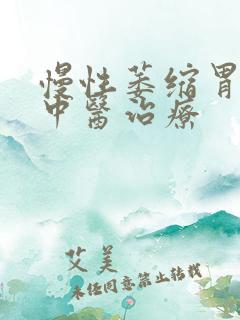 慢性萎缩胃
中醫治療
艾美
未经同意禁止转载